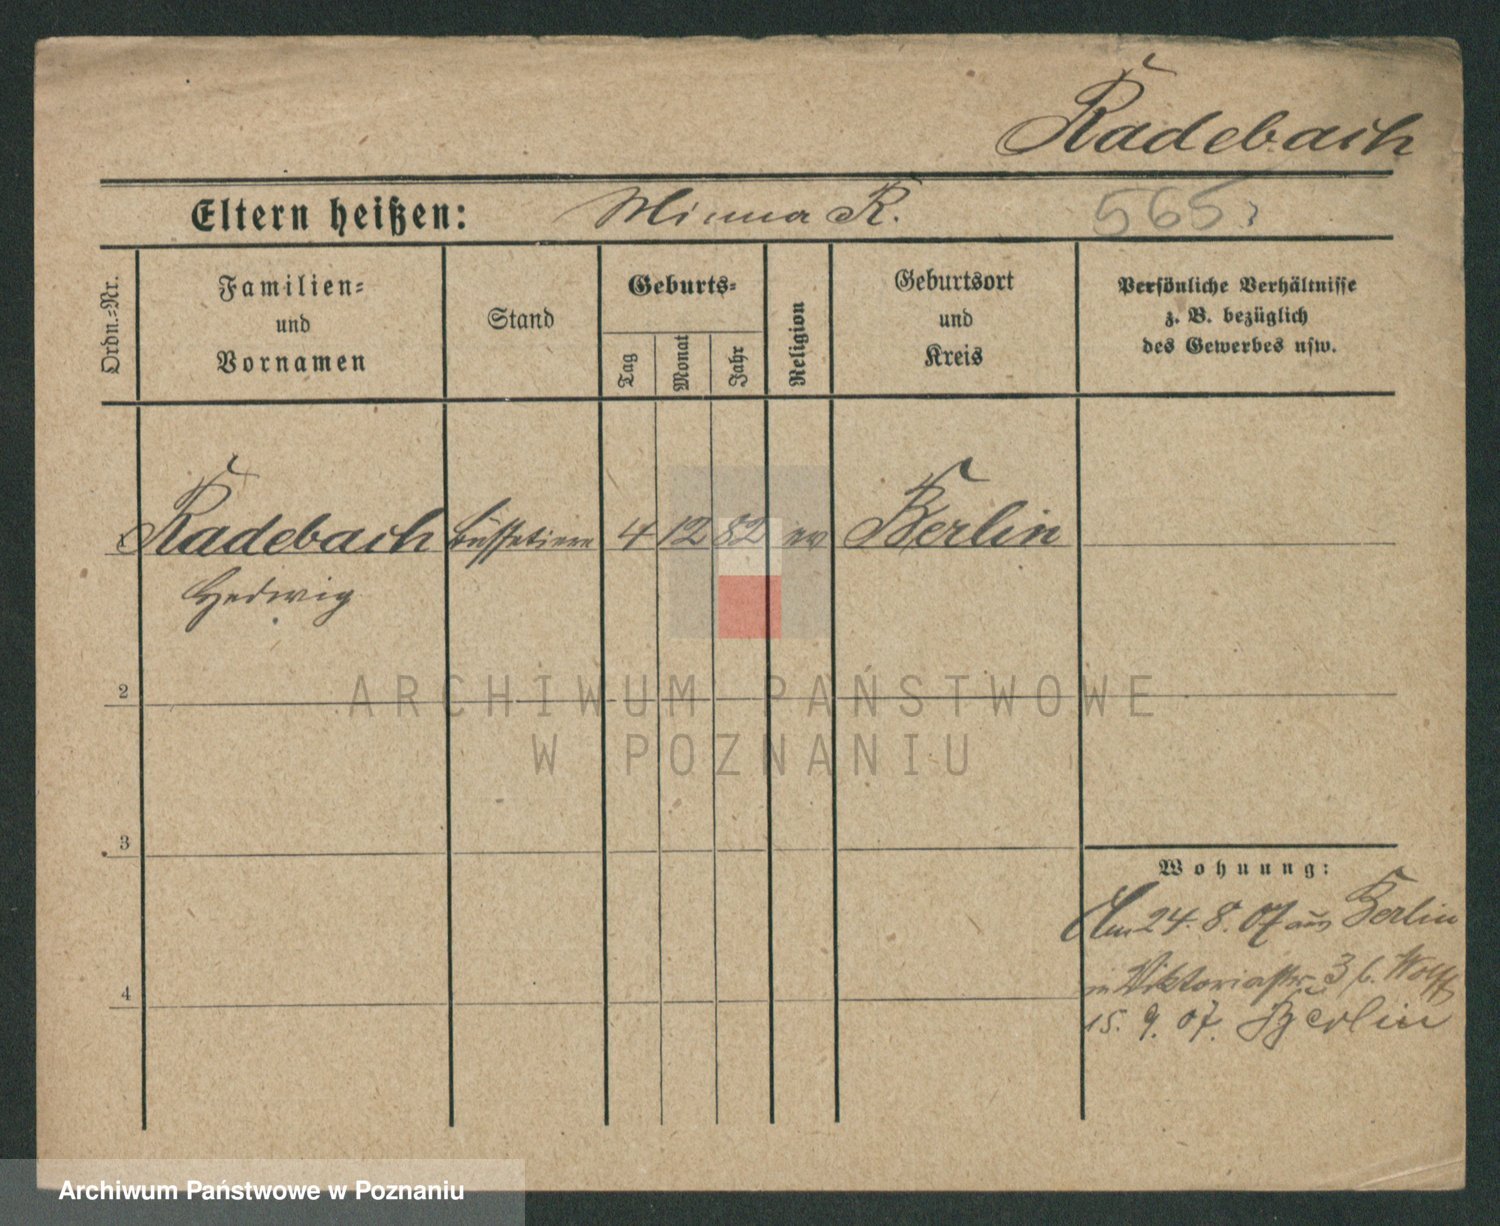 Radebach
Eltern heißen: Minna R. 565
Ordn.-Nr.
Familien-
und
Vornamen
Stand
Geburts-
Tag
Monat
Jahr
Religion
Geburtsort
und
Kreis
Persönliche Verhältnisse
z. B. bezüglich
des Gewerbes usw.
Radebach Büffetiere 4 12 82 ev Berlin
Hedwig
2
3
4
Wohnung:
Am 24. 8. 07 aus Berlin
in Viktoriastr. 3 b. Wolff
15. 9. 07. Berlin
ARCHIWUM PAŃSTWOWE
W POZNANIU
Archiwum Państwowe w Poznaniu